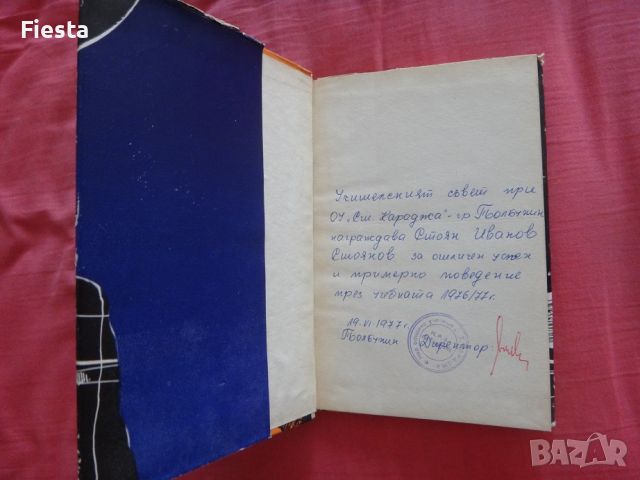 Fiesta
Учителският съвет при
ОУ „Ст. Караджа" - гр. Толбухин
награждава Стоян Иванов
Стоянов за отличен успех
и примерно поведение
през учебната 1976/77 г.
19.VI.1977 г.
Толбухин Директор:
BAZAR
bg